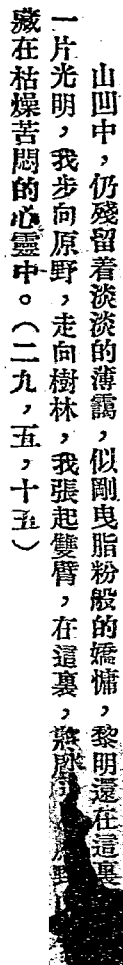 山凹中，仍殘留着淡淡的薄靄，似剛曳脂粉般的嬌慵，黎明還在這裏
一片光明，我步向原野，走向樹林，我張起雙臂，在這裏，
藏在枯燥苦悶的心靈中。（二九，五，十五）